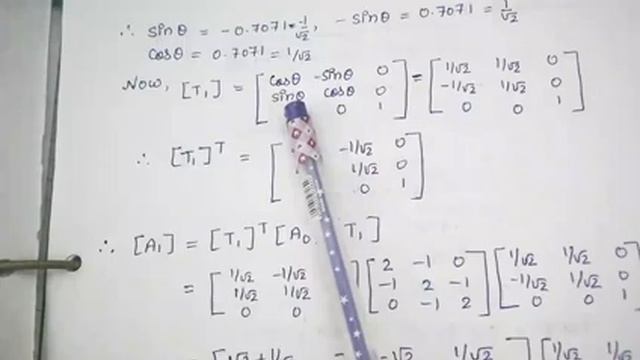 ∴ sinθ = -0.7071 = -1/√2, -sinθ = 0.7071 = 1/√2
cosθ = 0.7071 = 1/√2
Now, [T₁] = [cosθ -sinθ 0 = [1/√2 1/√2 0
sinθ cosθ 0 -1/√2 1/√2 0
0 1] 0 0 1]
∴ [T₁]ᵀ = [ -1/√2 0
1/√2 0
0 1]
∴ [A₁] = [T₁]ᵀ [A₀ T₁]
= [1/√2 -1/√2 [2 -1 0 [1/√2 1/√2 0
1/√2 1/√2 -1 2 -1 -1/√2 1/√2 0
0 0 ] 0 -1 2] 0 0 1]